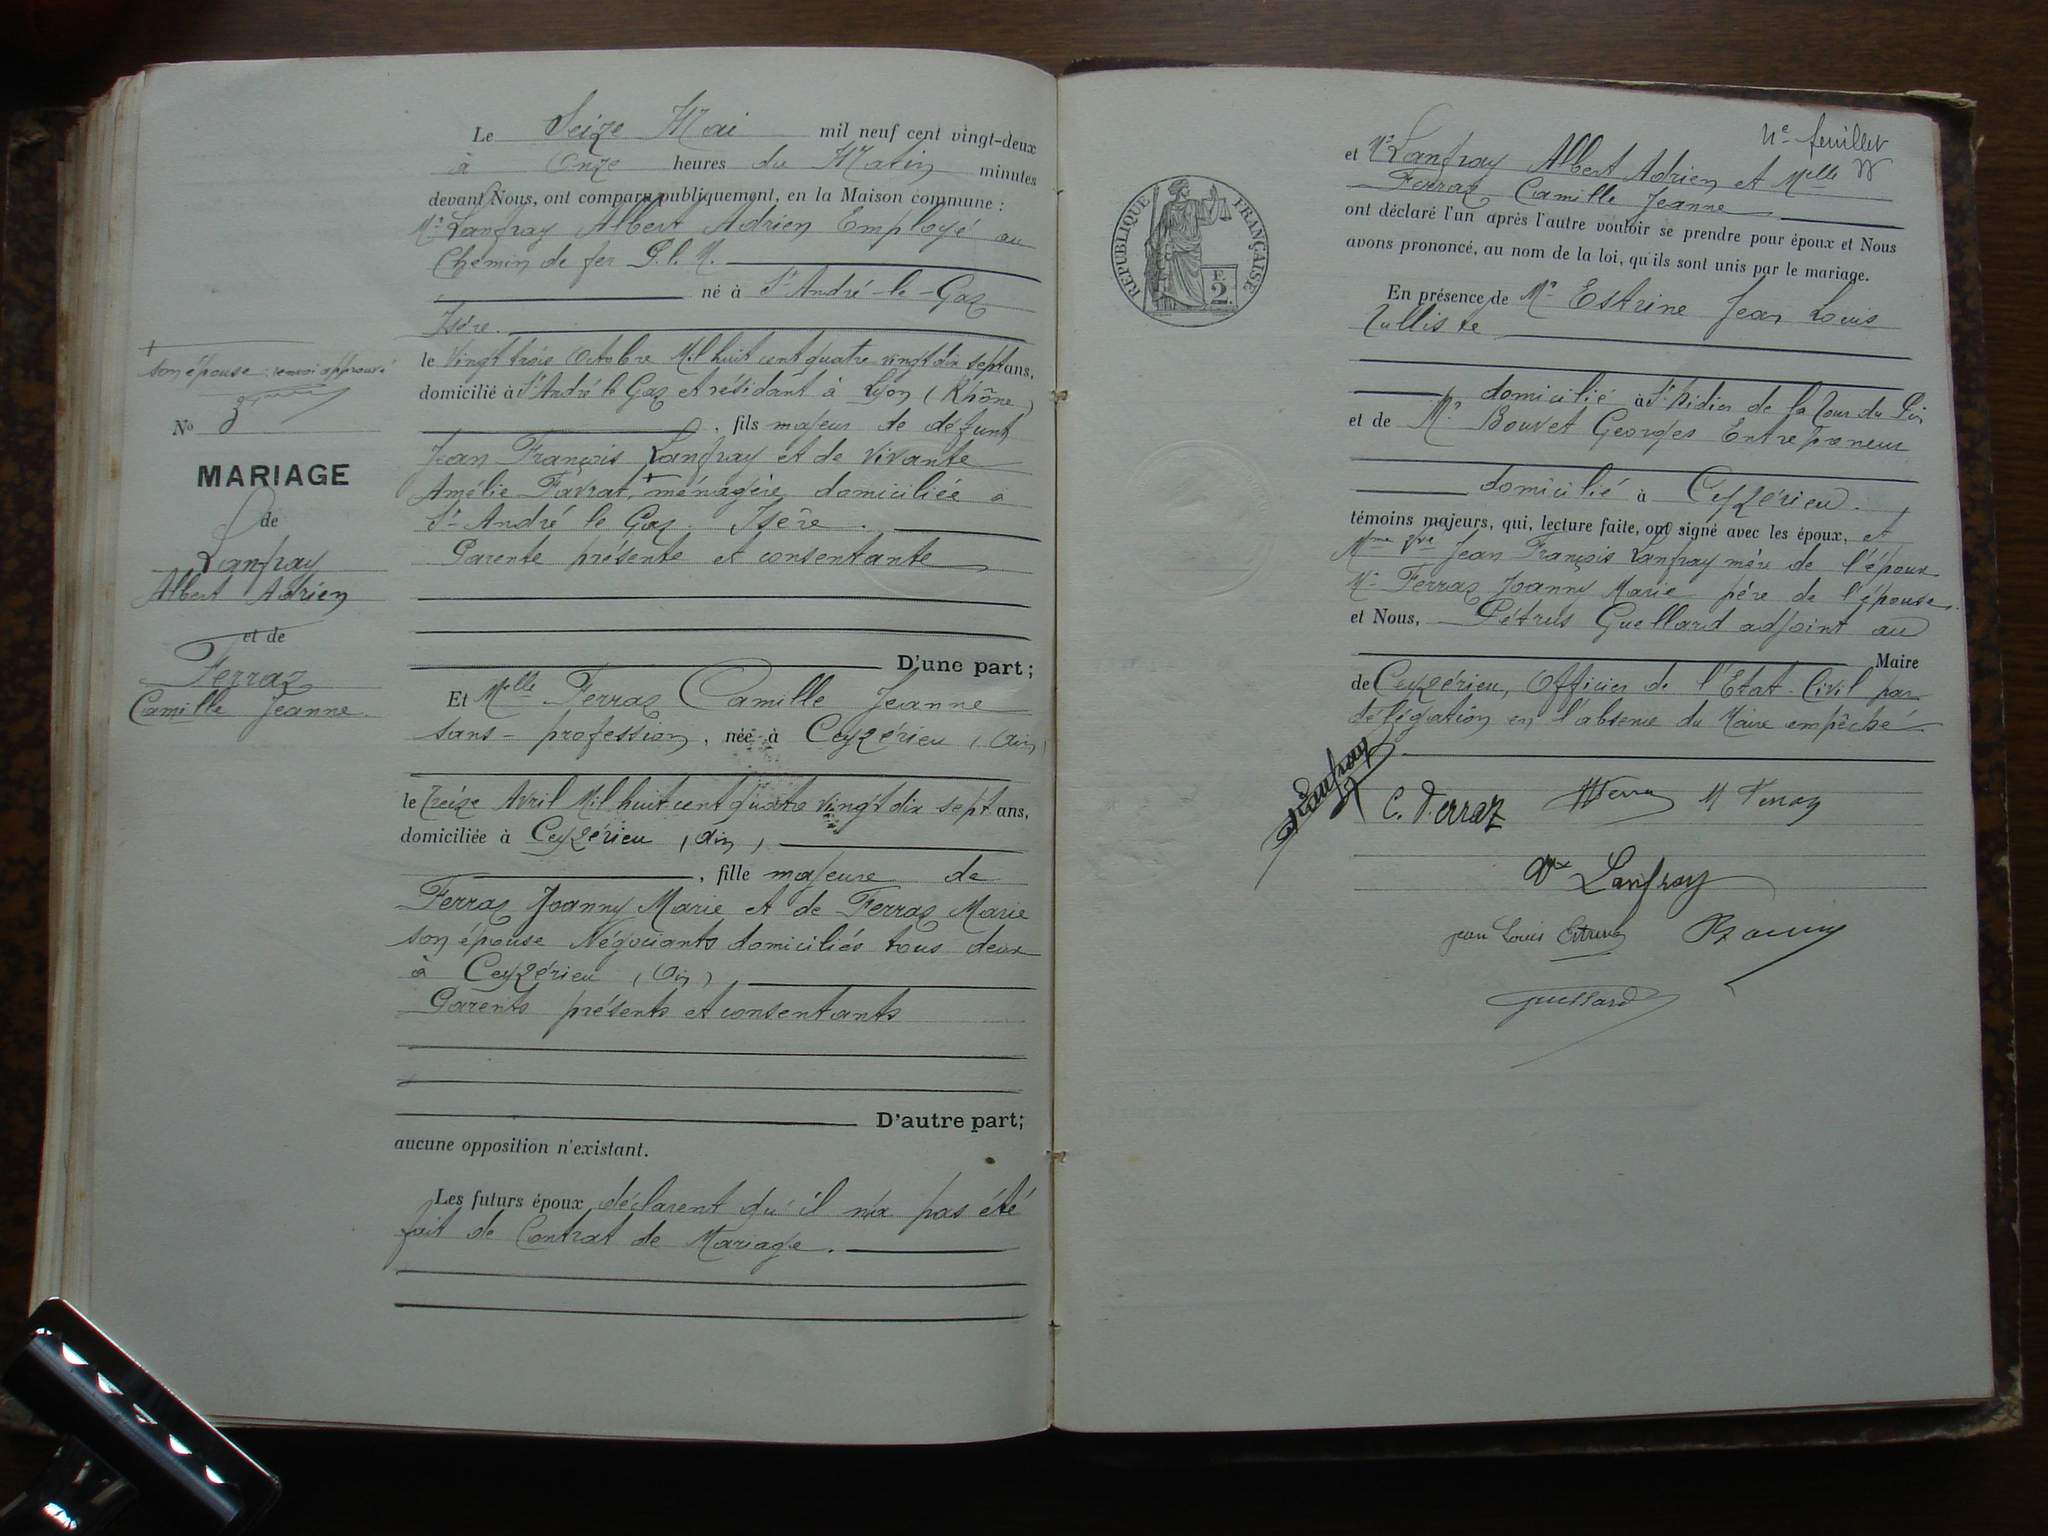 Le Seize Mai mil neuf cent vingt-deux
à Onze heures du Matin minutes
devant Nous, ont comparu publiquement, en la Maison commune :
Mr Lanfray Albert Adrien Employé au
Chemin de fer P. L. M.
né à St André-le-Gaz
Isère.
le Vingt trois Octobre Mil huit cent quatre vingt dix sept ans,
domicilié à St André le Gaz et résidant à Lyon (Rhône)
, fils majeur de défunt
Jean François Lanfray et de vivante
Amélie Favrat, + ménagère, domiciliée à
St-André le Gaz. Isère.
Parente présente et consentante
D'une part;
+
son épouse : renvoi approuvé
No
MARIAGE
de
Lanfray
Albert Adrien
et de
Ferraz
Camille Jeanne
Et Melle Ferraz Camille Jeanne
sans-profession, née à Ceyzérieu (Ain)
le Treize Avril Mil huit cent quatre vingt dix sept ans,
domiciliée à Ceyzérieu (Ain),
, fille majeure de
Ferraz Joanny Marie et de Ferraz Marie
son épouse Négociants domiciliés tous deux
à Ceyzérieu, (Ain)
Parents présents et consentants
D'autre part;
aucune opposition n'existant.
Les futurs époux déclarent qu'il n'a pas été
fait de Contrat de Mariage.
feuillet
et Mr Lanfray Albert Adrien et Melle
Ferraz Camille Jeanne
ont déclaré l'un après l'autre vouloir se prendre pour époux et Nous
avons prononcé, au nom de la loi, qu'ils sont unis par le mariage.
RÉPUBLIQUE FRANÇAISE
F.
2.
En présence de Mr Estrine Jean Louis
Tulliste
domicilié à St Didier de la Tour du Pin
et de Mr Bouvet Georges Entrepreneur
domicilié à Ceyzérieu.
témoins majeurs, qui, lecture faite, ont signé avec les époux, et
Mme Vve Jean François Lanfray mère de l'époux
Mr Ferraz Joanny Marie père de l'épouse
et Nous, Pétrus Guellard adjoint au
Maire
de Ceyzérieu, Officier de l'Etat-Civil par
délégation en l'absence du Maire empêché
Lanfray
C. Ferraz
M Ferraz
Vve Lanfray
jean Louis Estrine
Guellard